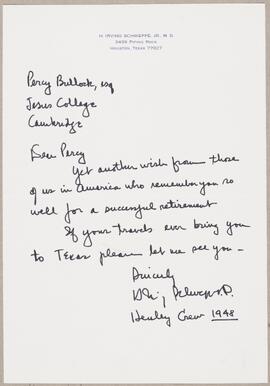 H. IRVING SCHWEPPE, JR., M. D.
3405 PIPING ROCK
HOUSTON, TEXAS 77027
Percy Bullock, esq
Jesus College
Cambridge
Dear Percy
Yet another wish from those
of us in America who remember you so
well for a successful retirement
If your travels ever bring you
to Texas please let me see you -
Sincerely
Henley Crew 1948